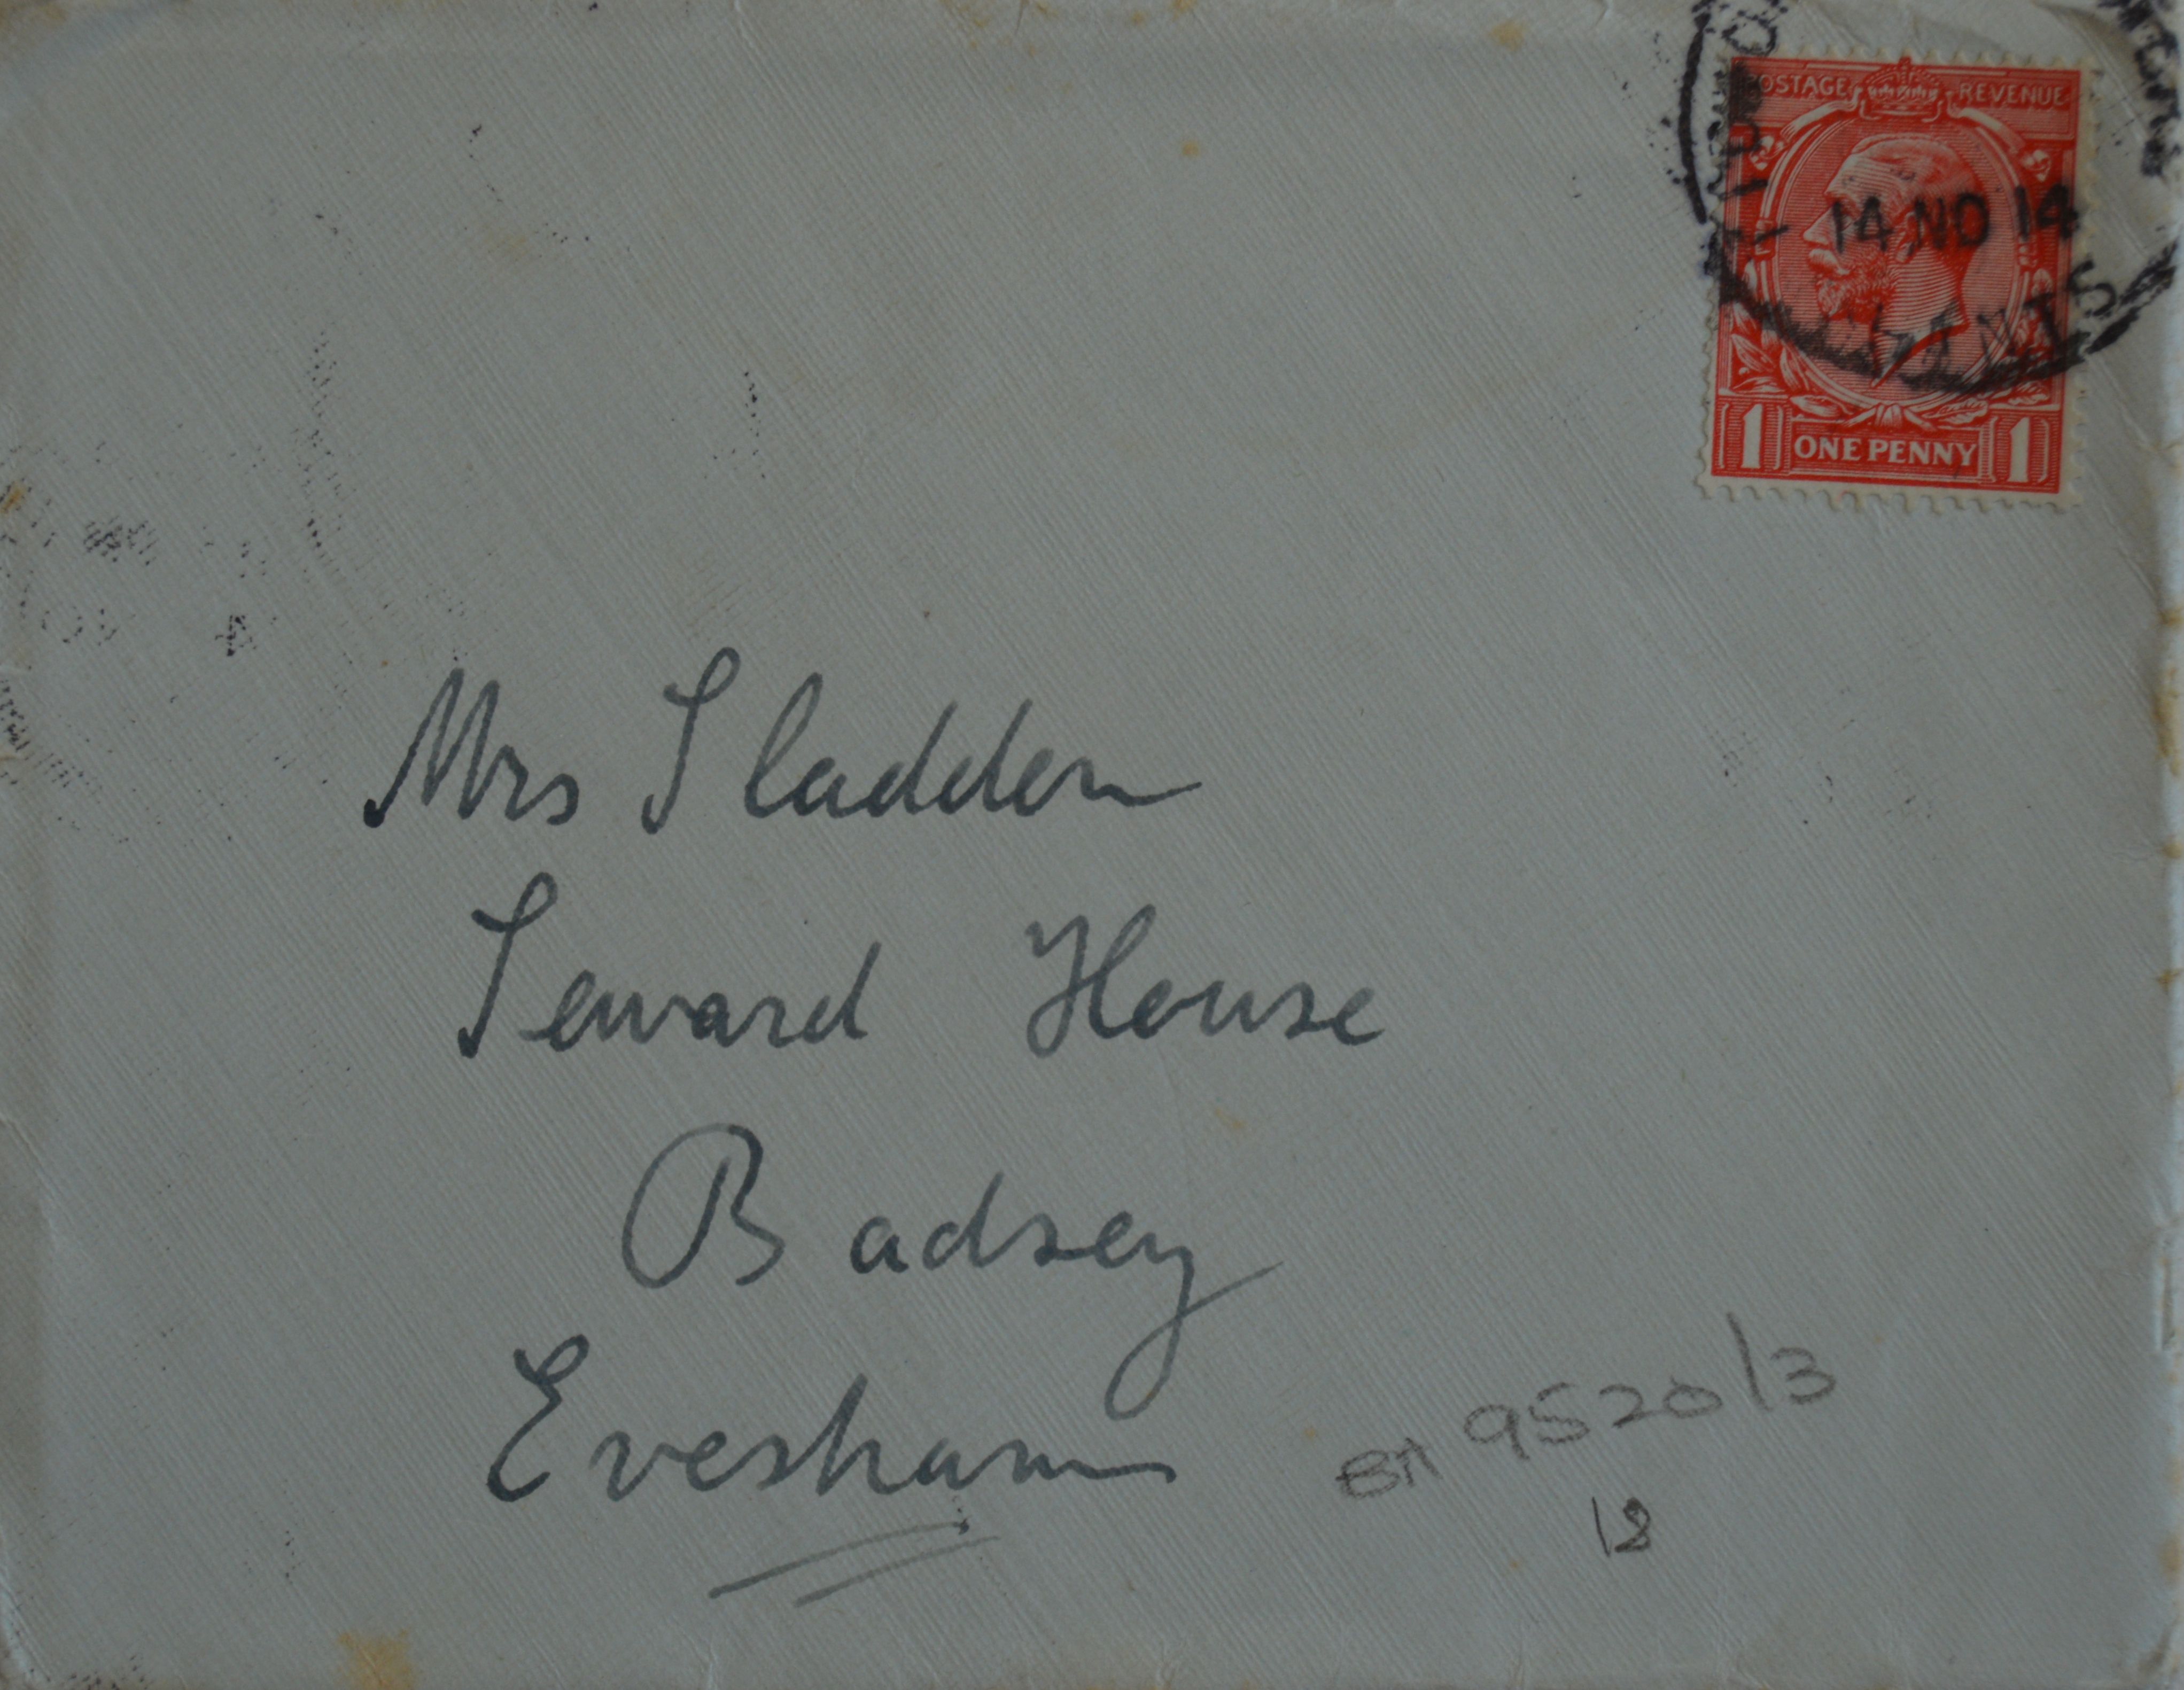 POSTAGE REVENUE
14 NO 14
1 ONE PENNY 1
Mrs Sladden
Seward House
Badsey
Evesham
BA 9520/3
12